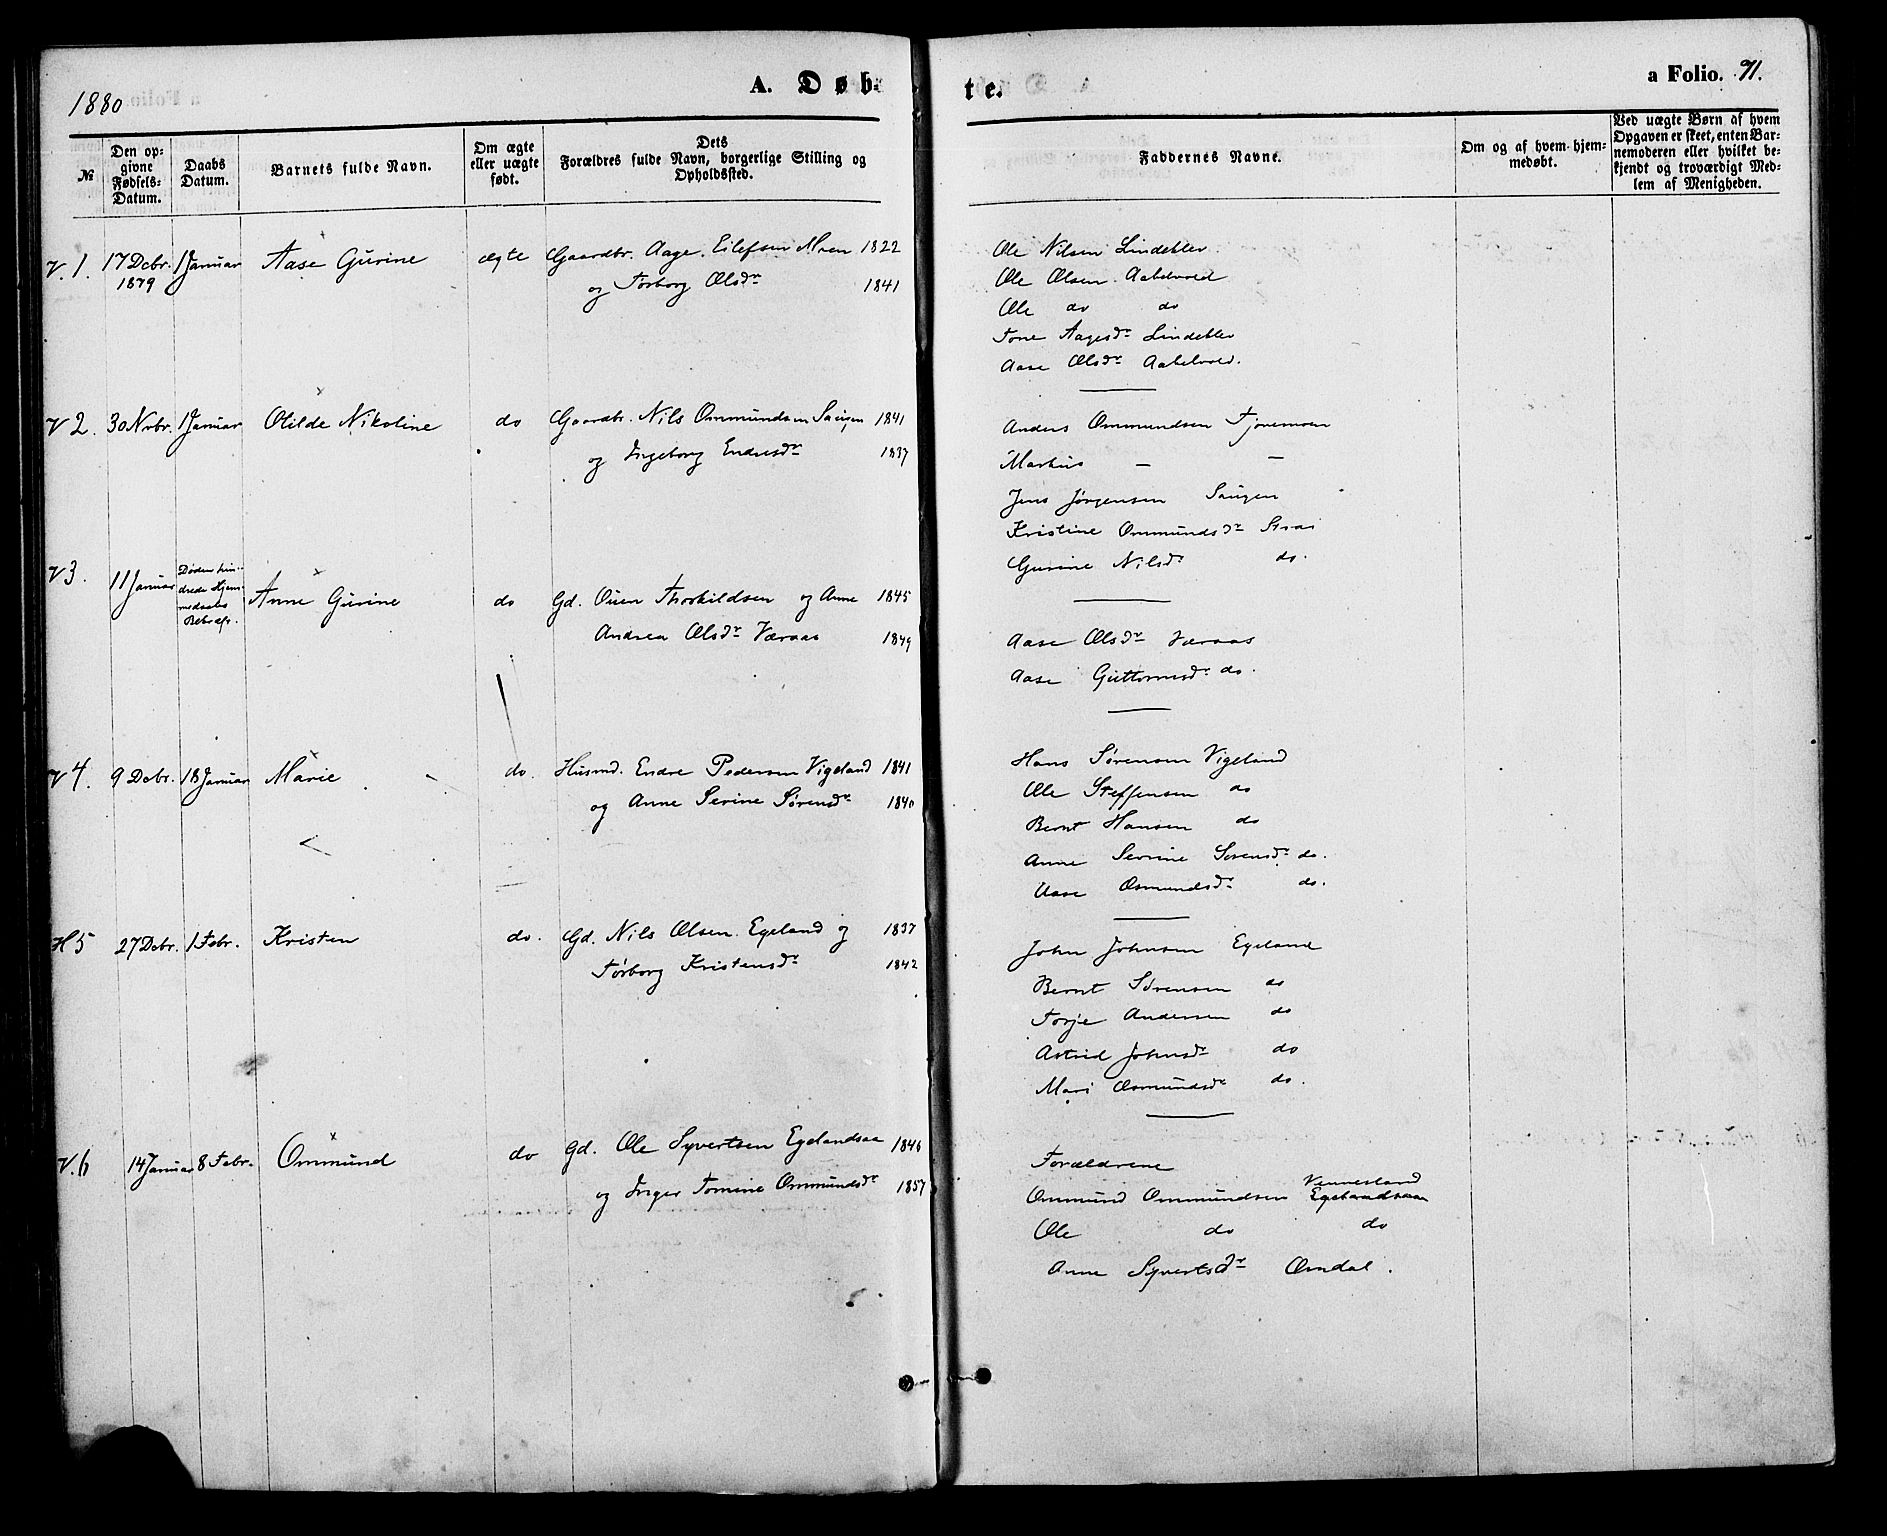 1880
A. Døb
te.
a Folio. 91.
№
Den op-
givne
Fødsels-
Datum.
Daabs
Datum.
Barnets fulde Navn.
Om ægte
eller uægte
født.
Dets
Forældres fulde Navn, borgerlige Stilling og
Opholdssted.
Faddernes Navne.
Om og af hvem hjem-
medøbt.
Ved uægte Børn af hvem
Opgaven er skeet, enten Bar-
nemoderen eller hvilket be-
kjendt og troværdigt Med-
lem af Menigheden.
V. 1. 17 Dcbr. 1 Januar Aase Gurine ægte Gaardbr. Aage Eilefsen Moen 1822
1879 og Torborg Olsdr 1841
Ole Nilsen Lindeklev
Ole Olsen Aabelvold
Ole do do
Tone Aagesdr Lindeklev
Aase Olsdr Aabelvold.
V 2. 30 Nvbr. 1 Januar Otilde Nikoline do Gaardbr. Nils Ommundsen Saugen 1841
og Ingeborg Endresdr 1837
Anders Ommundsen Fjovemoen
Markus — —
Jens Jørgensen Saugen
Kristine Ommundsdr Strai
Gurine Nilsdr do.
V 3. 11 Januar Døden hin-
drede Hjem-
medaabs
Bekræft.
Anne Gurine do Gd. Ouen Thorkildsen og Anne 1845
Andrea Olsdr Væraas 1849
Aase Olsdr Væraas
Aase Guttormsdr do.
V 4. 9 Dcbr. 18 Januar Marie do. Husmd. Endre Pedersen Vigeland 1841
og Anne Serine Sørensdr 1840
Hans Sørensen Vigeland
Ole Steffensen do
Bernt Hansen do
Anne Serine Sørensdr do.
Aase Osmundsdr do.
H 5 27 Dcbr. 1 Febr. Kristen do. Gd. Nils Olsen Egeland og 1837
Torborg Kristensdr 1842
John Johnsen Egeland
Bernt Sørensen do
Torje Andersen do
Astrid Johnsdr do
Mari Osmundsdr do.
V. 6 14 Januar 8 Febr. Ommund do Gd. Ole Syvertsen Egelandsaa 1846
og Inger Tomine Ommundsdr 1857
Forældrene
Vennesland
Ommund Ommundsen Egelandsaa
Ole do do
Anne Syvertsdr Omdal.